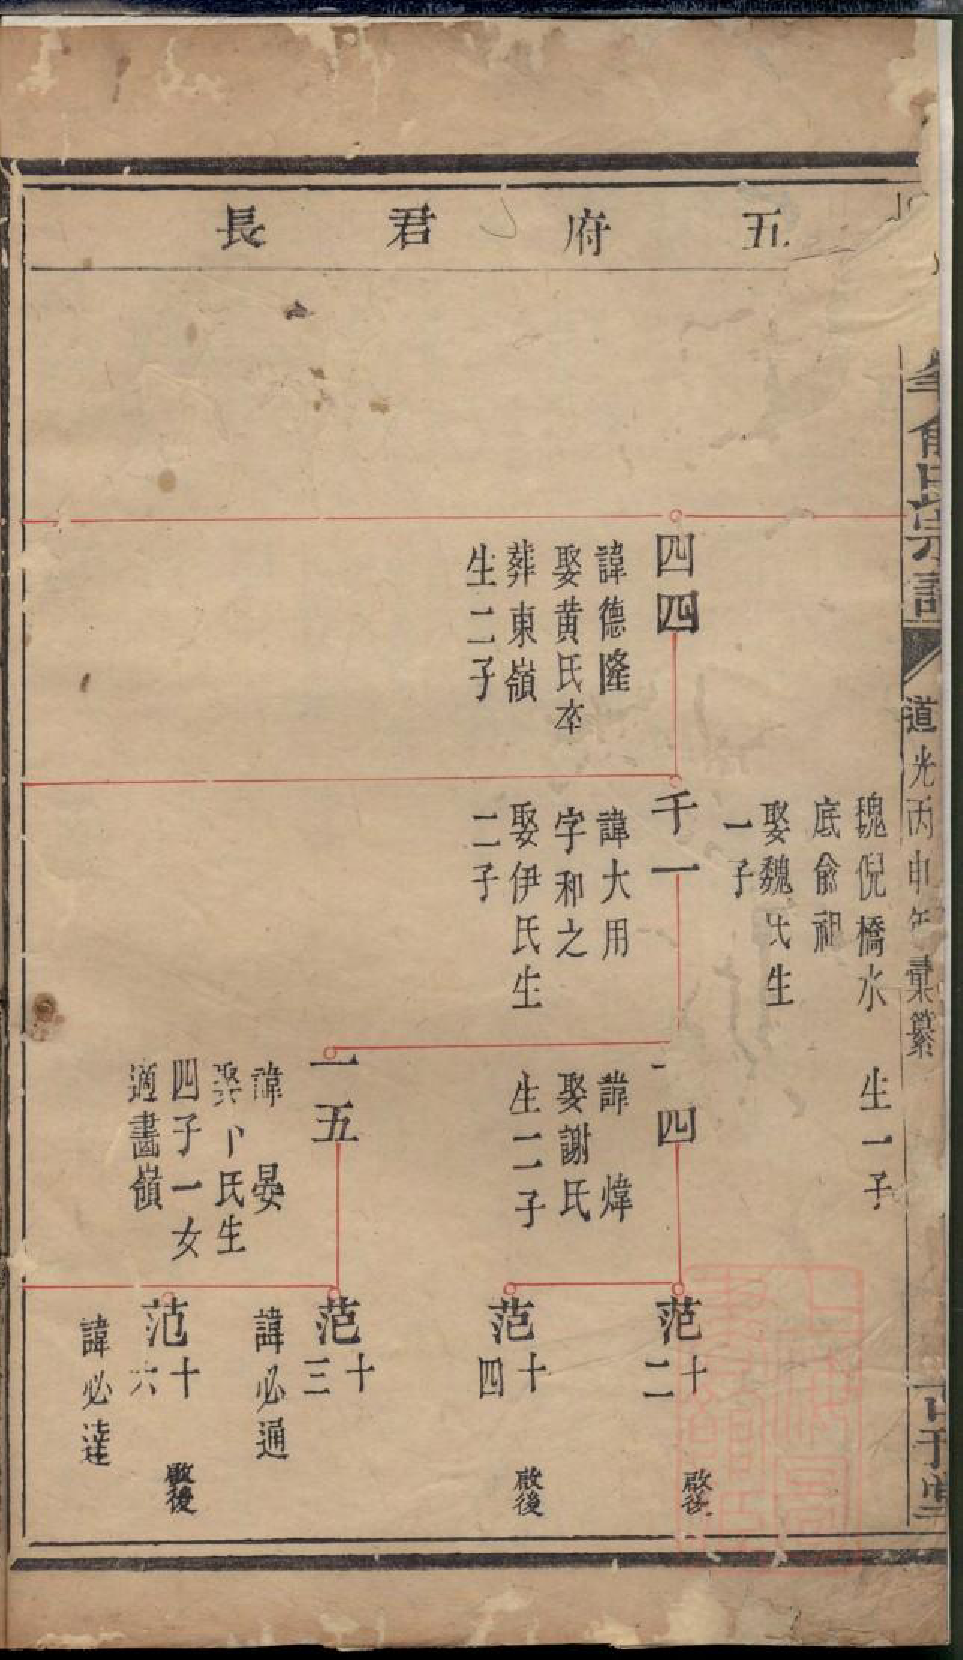 五府君長
俞氏宗譜
道光丙申年彙纂
魏倪橋水
底俞祖
生一子
娶魏氏生
一子
四四
諱德隆
娶黄氏卒
葬東嶺
生二子
千一
諱大用
字和之
娶伊氏生
二子
四
諱煒
娶謝氏
生二子
一五
諱晏
娶卩氏生
四子一女
適畵嶺
范十二
啟後
范十四
啟後
范十三
諱必通
范十六
啟後
諱必達